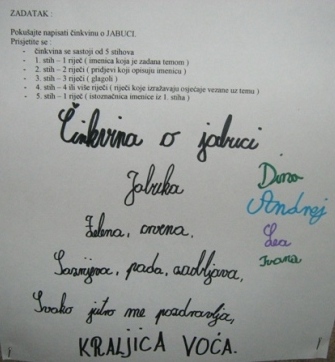 ZADATAK :
Pokušajte napisati činkvinu o JABUCI.
Prisjetite se :
- činkvina se sastoji od 5 stihova
- 1. stih – 1 riječ ( imenica koja je zadana temom )
- 2. stih – 2 riječi ( pridjevi koji opisuju imenicu )
- 3. stih – 3 riječi ( glagoli )
- 4. stih – 4 ili više riječi ( riječi koje izražavaju osjećaje vezane uz temu )
- 5. stih – 1 riječ ( istoznačnica imenice iz 1. stiha )
Činkvina o jabuci
Jabuka
Zelena, crvena,
Sazrijeva, pada, zadivljava,
Svako jutro me pozdravlja,
KRALJICA VOĆA.
Dora
Andrej
Lea
Ivana